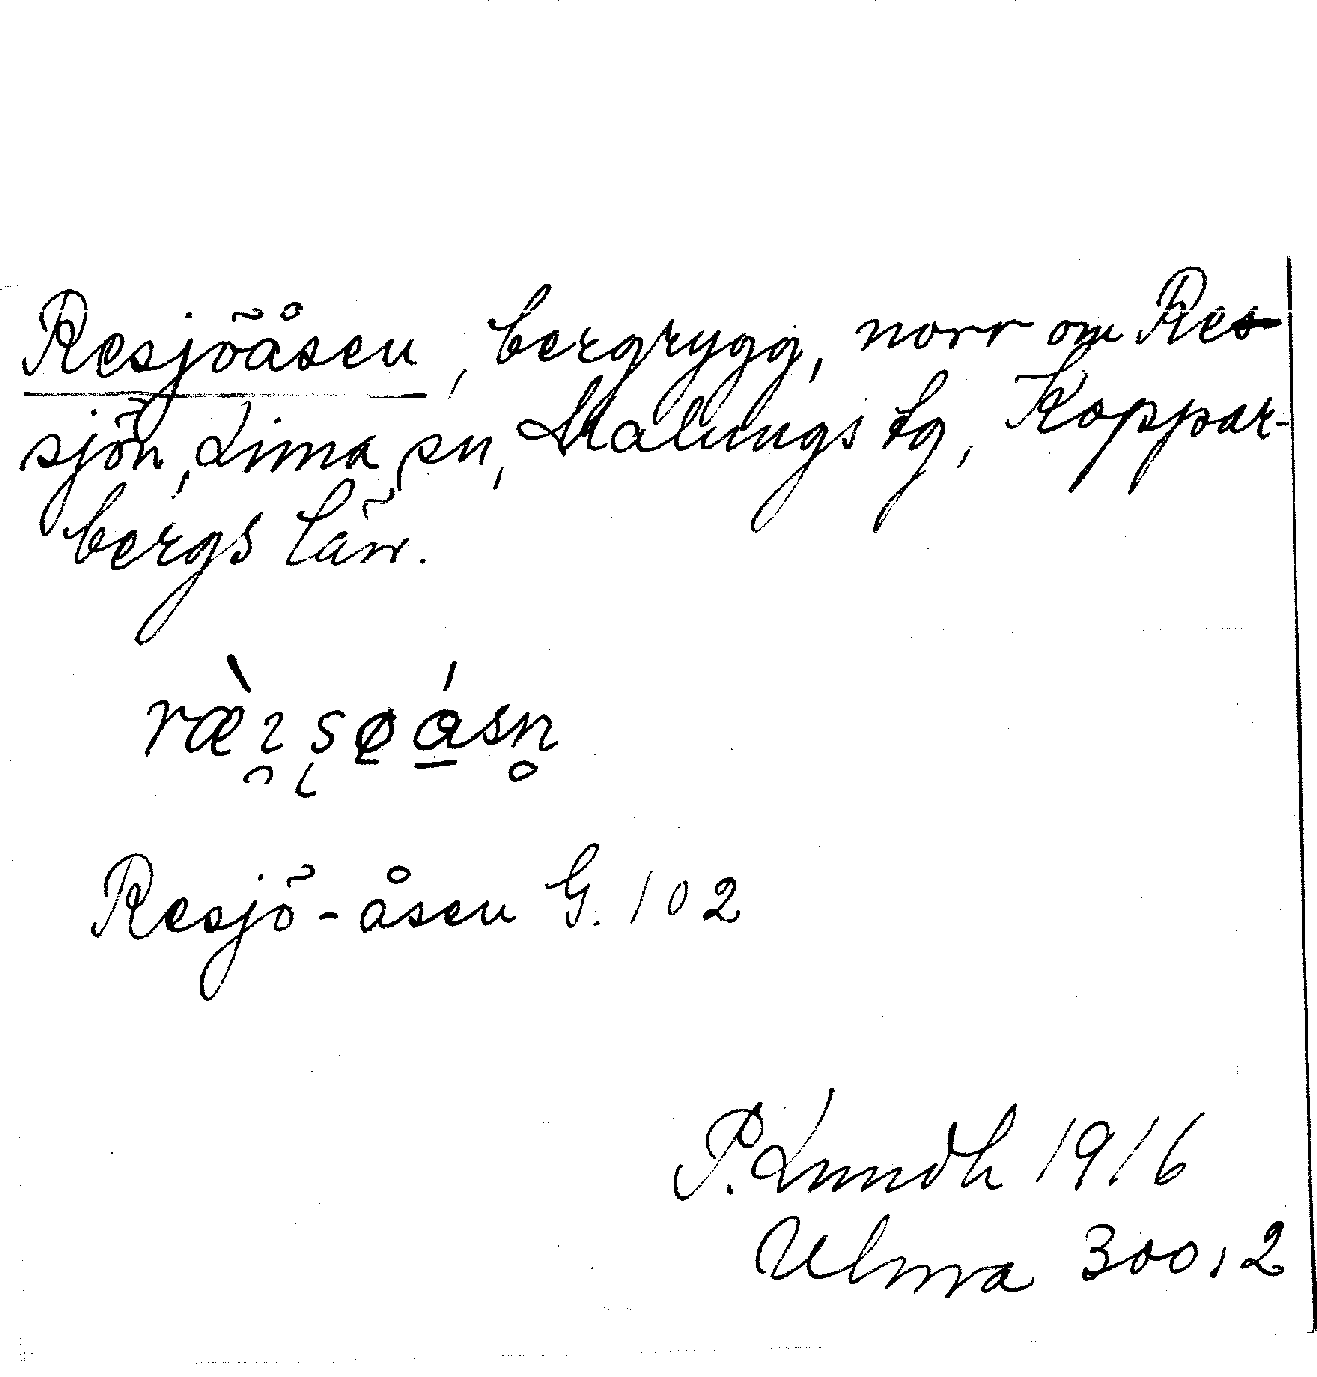 Resjöåsen, bergrygg, norr om Res-
sjön, Lima sn, Malungs tg, Koppar-
bergs län.
Resjö-åsen G. 102
P. Lundh 1916
Ulma 300:2